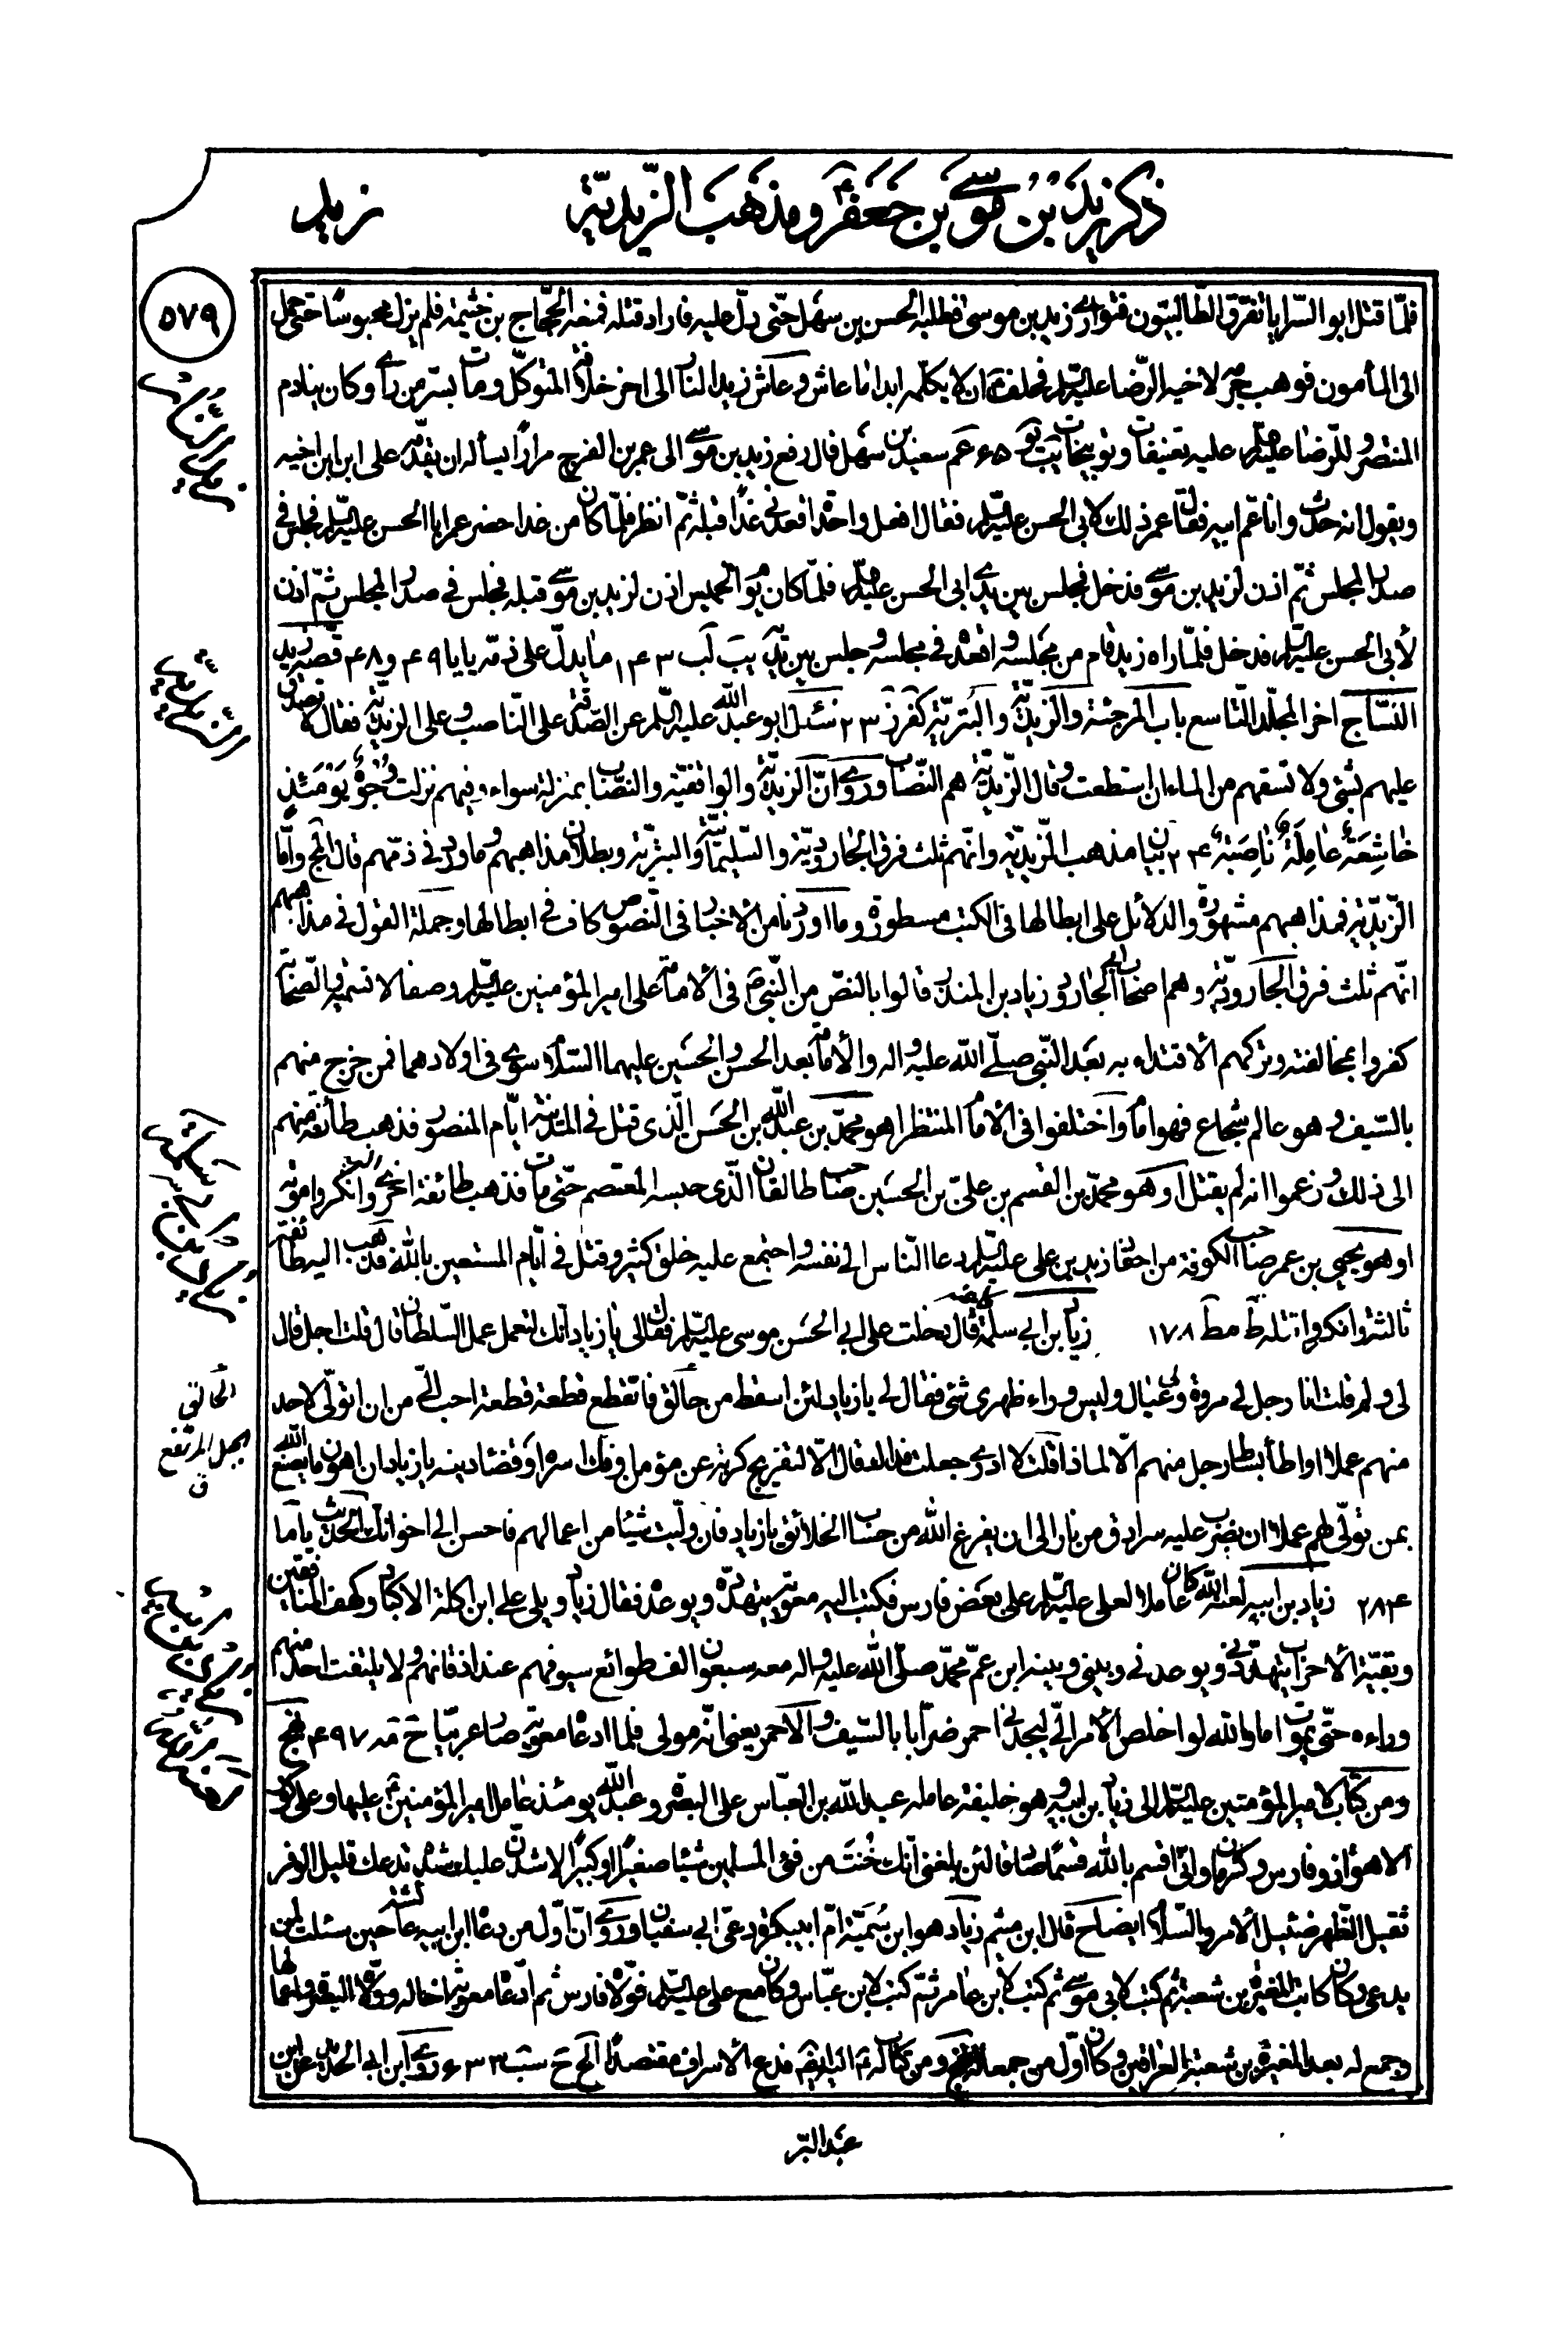 ذكر زيد بن موسى بن جعفر ومذهب الزيديّة
زيد
٥٧٩
فلمّا قتل ابو السّرايا تفرّق الطّالبيّون فتوارى زيد بن موسى فطلبه الحسن بن سهل حتّى دلّ عليه فاراد قتله فمنعه الحجّاج بن خثيمة فلم يزل محبوسًا حتى حمل
الى المأمون فوهب جرمه لاخيه الرّضا عليه السّلم فحلف ان لا يكلّمه ابدا ما عاش وعاش زيد النار الى اخر خلافة المتوكّل ومات بسرّ من رأى وكان ينادم
المنتصر وللرّضا عليه السلم عليه تعنيفات وتوبيخات يب نو ٦٥ عم سعيد بن سهل قال رفع زيد بن موسى الى عمر بن الفرج مرارًا يسأله ان يقدّمه على ابن ابن اخيه
ويقول انه حدث وانا عمّ ابيه فقال عمر ذلك لابى الحسن عليه السلم فقال افعل واحدة اقعدنى غدًا قبله ثمّ انظر فلمّا كان من غد احضر عمر ابا الحسن عليه السلم فجلس فى
صدر المجلس ثمّ اذن لزيد بن موسى فدخل فجلس بين يدى ابى الحسن عليه السلم فلمّا كان يوم الخميس اذن لزيد بن موسى قبله فجلس فى صدر المجلس ثمّ اذن
لأبى الحسن عليه السلم فدخل فلمّا راه زيد قام من مجلسه واقعده فى مجلسه وجلس بين يديه يب لب ١٤٣ ما يدلّ على ذمّه يا يا ٤٩ و ٤٨ قصّة زيد
النسّاج اخر المجلّد التّاسع باب المرجئة والزيديّة والبتريّة كفر ز ٢٣ سئل ابو عبد الله عليه السلم عن الصّدقة على النّاصب وعلى الزيديّة فقال لا تصدّق
عليهم بشئ ولا تسقهم من الماء ان استطعت وقال الزّيديّة هم النّصاب وروى انّ الزيديّة والواقفيّة والنصّاب بمنزلة سواء وفيهم نزلت وُجُوهٌ يَوْمَئِذٍ
خاشِعَةٌ عامِلَةٌ ناصِبَةٌ ٢٤ بيان مذهب الزّيديّة وانّهم ثلث فرق الجاروديّة والسّليمانيّة والبتريّة وبطلان مذاهبهم وما ورد فى ذمّهم قال الج وامّا
الزّيديّة فمذاهبهم مشهورة والدلائل على ابطالها فى الكتب مسطورة وما اوردنا من الأخبار فى النّصوص كاف فى ابطالها وجملة القول فى مذاهبهم
انّهم ثلث فرق الجاروديّة وهم اصحاب ابى الجارود زياد بن المنذر قالوا بالنصّ من النّبى ص فى الأمامة على امير المؤمنين عليه السلم وصفا لا تسمية والصّحابة
كفروا بمخالفته وتركهم الأقتداء به بعد النّبى صلّى الله عليه واله والأمامة بعد الحسن والحسين عليهما السّلام شورى فى اولادهما فمن خرج منهم
بالسّيف وهو عالم شجاع فهو امام واختلفوا فى الأمام المنتظر اهو محمّد بن عبد الله بن الحسن الّذى قتل فى المدينة ايّام المنصور فذهب طائفة منهم
الى ذلك وزعموا انه لم يقتل او هو محمّد بن القسم بن علىّ بن الحسين صاحب طالقان الّذى حبسه المعتصم حتّى مات فذهب طائفة اخرى اليه وانكروا موته
او هو يحيى بن عمر صاحب الكوفة من احفاد زيد بن على عليه السلم دعا النّاس الى نفسه واجتمع عليه خلق كثير وقتل فى ايّام المستعين بالله فذهب اليه طائفة
ثالثة وانكروا قتله ط مط ١٧٨ زياد بن ابى سلمة قال دخلت على ابى الحسن موسى عليه السلم فقال لى يا زياد انّك لتعمل عمل السّلطان قال قلت اجل قال
لى ولم قلت انا رجل لى مروة ولى عيال وليس وراء ظهرى شئ فقال لى يا زياد لئن اسقط من حالق فاتقطّع قطعة قطعة احبّ الىّ من ان اتولّى لاحد
منهم عملا او اطأ بساط رجل منهم الّا لماذا قلت لا ادرى جعلت فداك فقال الّا لتفريج كربة عن مؤمن او فكّ اسره او قضاء دينه يا زياد ان اهون ما يصنع الله
بمن تولّى لهم عملا ان يضرب عليه سرادق من نار الى ان يفرغ الله من حساب الخلائق يا زياد فان ولّيت شيئا من اعمالهم فاحسن الى اخوانك الحديث يا ما
٢٨٤ زياد بن ابيه لعنه الله كان عاملا لعلى عليه السلم على بعض فارس فكتب اليه معوية يتهدّده ويوعده فقال زياد ويلى على ابن اكلة الاكباد وكهف المنافقين
وبقيّة الأحزاب يتهدّدنى ويوعدنى وبينى وبينه ابن عمّ محمّد صلّى الله عليه واله معه سبعون الف طوائع سيوفهم عند اذقانهم ولا يلتفت احد منهم
وراءه حتّى يموت اما والله لو اخلص الأمر الىّ ليجدنى احمر ضرّابا بالسّيف والاحمر يعنى انّه مولى فلما ادعاه معوية صار عربيّا ح مد ٤٩٧ نهج
ومن كتاب لامير المؤمنين عليه السلم الى زياد بن ابيه وهو خليفة عامله عبد الله بن العبّاس على البصرة وعبد الله يومئذ عامل امير المؤمنين عليها وعلى كور
الاهواز وفارس وكرمان وانّى اقسم بالله قسمًا صادقا لئن بلغنى انّك خنت من فئ المسلمين شيئا صغيرًا او كبيرًا لاشدّنّ عليك شدّة تدعك قليل الوفر
ثقيل الظّهر ضئيل الأمر والسّلام ايضاح قال ابن ميثم زياد هو ابن سميّة امّ ابى بكرة دعىّ ابى سفيان وروى انّ اوّل من دعاه ابن ابيه عائشة حين سئلت لمن
يدعى وكان كاتب المغيرة بن شعبة ثم كتب لابى موسى ثم كتب لابن عامر ثمّ كتب لابن عبّاس وكان مع على عليه السلم فولّاه فارس ثم ادّعاه معوية اخا له وولّاه البصرة واعمالها
وجمع له بعد المغيرة بن شعبة العراقين وكان اوّل من جمعا له نهج ومن كتاب له ع اليه ايضا فدع الاسراف مقتصدًا الخ ح سب ٦٣٣ روى ابن ابى الحديد عن ابن
الحالق
الجبل المرتفع
ق
عبد البرّ